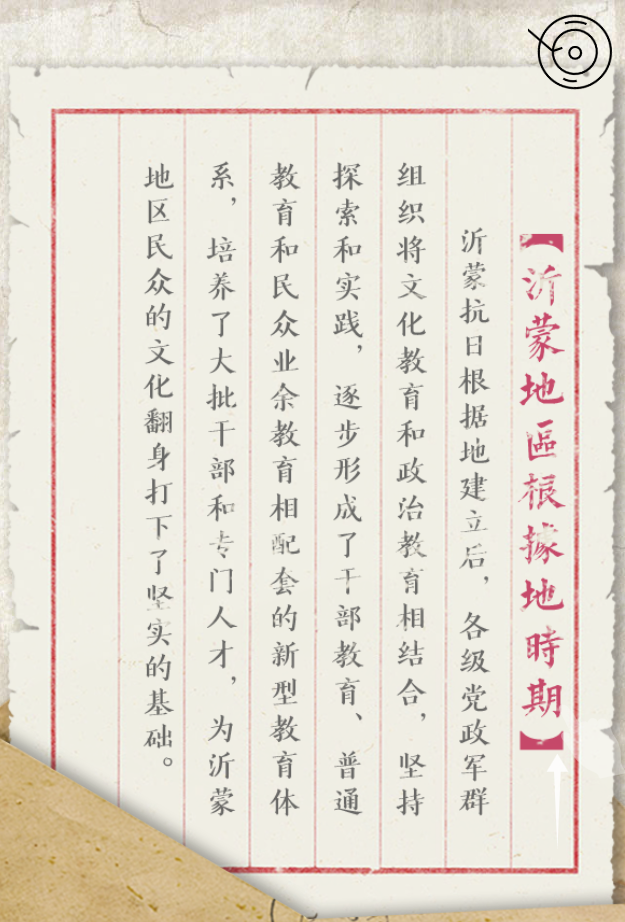 【沂蒙地區根據地時期】
沂蒙抗日根据地建立后，各级党政军群
组织将文化教育和政治教育相结合，坚持
探索和实践，逐步形成了干部教育、普通
教育和民众业余教育相配套的新型教育体
系，培养了大批干部和专门人才，为沂蒙
地区民众的文化翻身打下了坚实的基础。